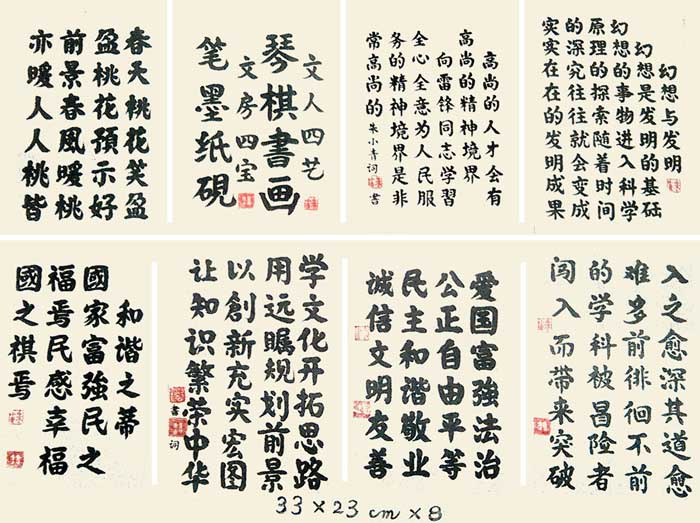 春天桃花笑盈
盈桃花預示好
前景春風暖桃
亦暖人人桃皆
文人四艺
琴棋書画
文房四宝
笔墨纸硯
高尚的人才会有
高尚的精神境界
向雷锋同志学習
全心全意为人民服
务的精神境界是非
常高尚的 朱小青词 書
幻想与发明
幻想是发明的基础
幻想的事物进入科学
原理的探索随着时间
的深究往往就会变成
实实在在的发明成果
和谐之蒂
國家富強民之
福焉民感幸福
國之祺焉
学文化开拓思路
用远瞩规划前景
以創新充实宏图
让知识繁荣中华
書 词
爱国富強法治
公正自由平等
民主和谐敬业
诚信文明友善
入之愈深其道愈
难多前徘徊不前
的学科被冒险者
闯入而带来突破
33×23cm×8